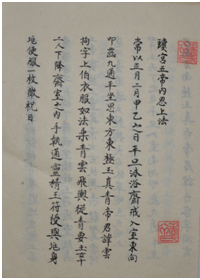 瓊宮五帝內思上法
常以三月三日甲乙之日平旦沐浴齋戒入室東向
叩齒九通平坐思東方東極玉真青帝君諱雲
拘字上伯衣服如法乘青雲飛輿從青要玉女十
二人下降齋室之內手執通靈
地使服一枚微祝曰